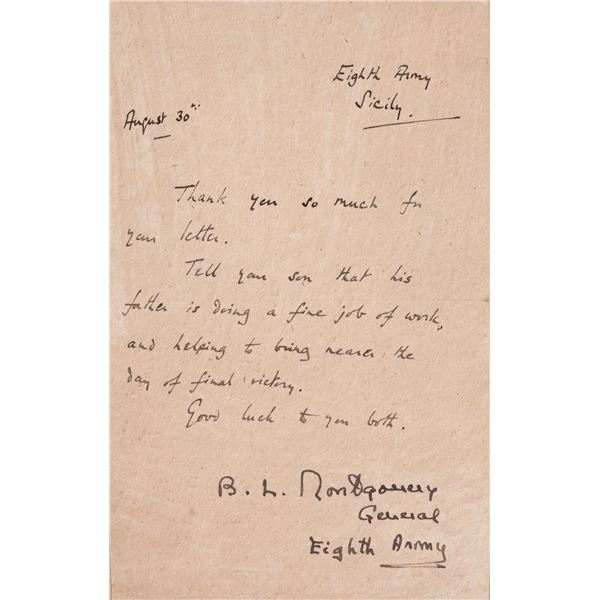 Eighth Army
Sicily.
August 30th
Thank you so much for
your letter.
Tell your son that his
father is doing a fine job of work,
and helping to bring nearer the
day of final victory.
Good luck to you both.
B. L. Montgomery
General
Eighth Army